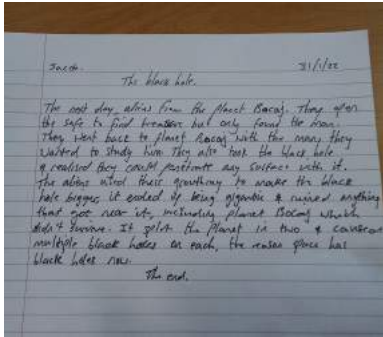 Jacob. 31/1/22
The black hole.
The next day, aliens from the planet Bocaj. These open
the safe to find treasure but only found the man.
They went back to planet Bocaj with the man, they
wanted to study him. They also took the black hole
& realised they could penetrate any surface with it.
The aliens used their to make the black
hole bigger, it ended up being gigantic & ruined anything
that got near it, including planet Bocaj which
didn't survive. It split the planet in two &
multiple black holes on each, the reason space has
black holes now.
The end.